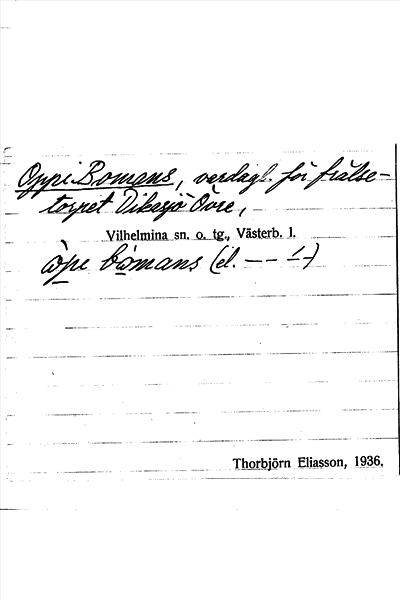 Oppi Bomans, vardagl. för frälse-
torpet Dikasjö Övre,
Vilhelmina sn. o. tg., Västerb. l.
òpe bómans (el. – – ∠ –)
Thorbjörn Eliasson, 1936.